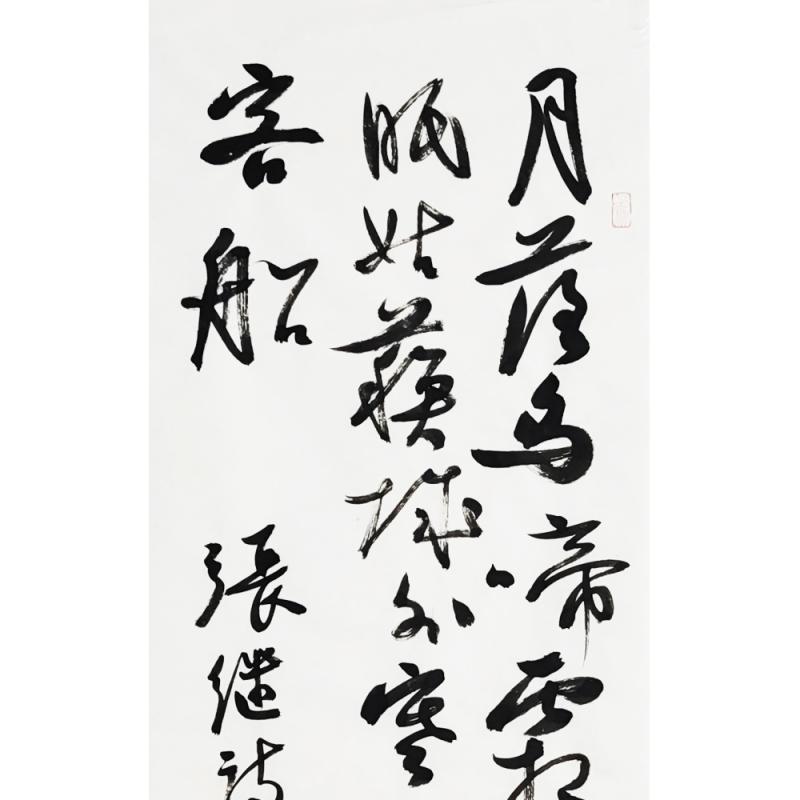 月落乌啼霜
眠姑蘇城外寒
客船 張継詩